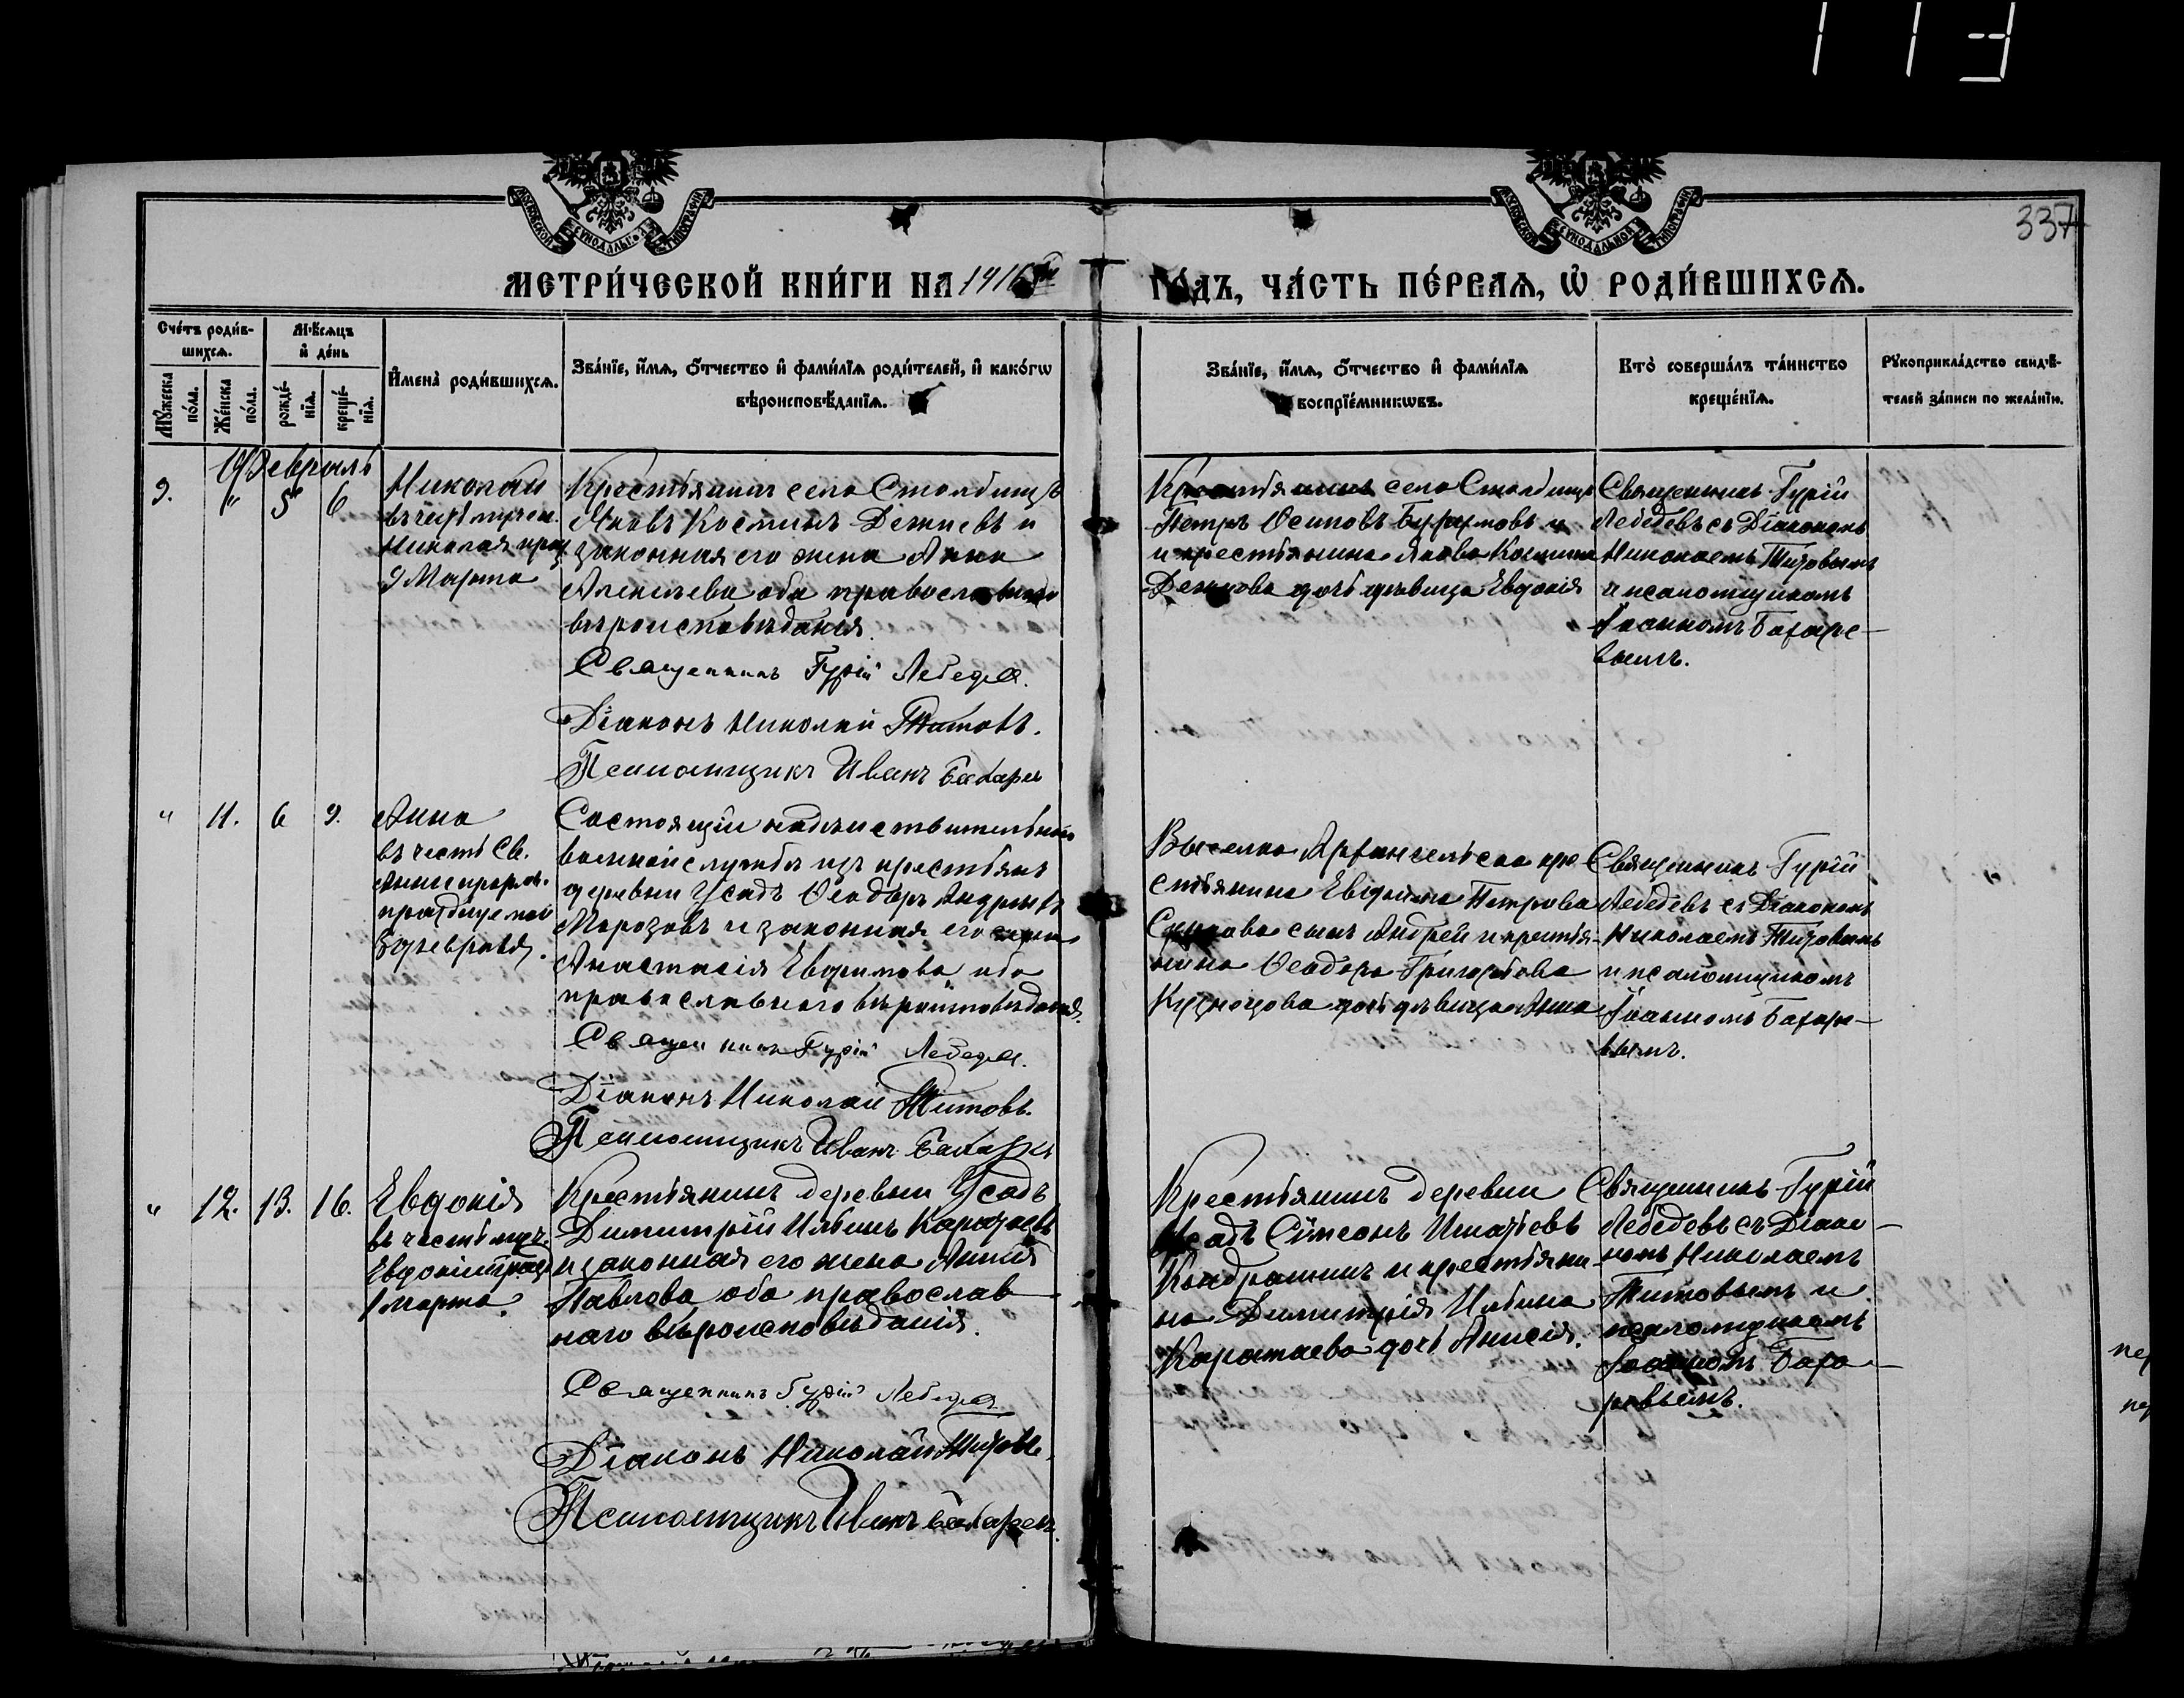 113
337
МЕТРИ́ЧЕСКОЙ КНИ́ГИ НА 1916й ГО́ДЪ, ЧА́СТЬ ПЕ́РВАѦ, Ѡ҆ РОДИ́ВШИХСѦ.
Сче́тъ роди́в-
шихсѧ.
Мѣ́сѧцъ
и҆ де́нь
Мꙋ́жеска
по́ла.
Же́нска
по́ла.
рожде́-
нїѧ.
креще́-
нїѧ.
И҆мена̀ роди́вшихсѧ.
Зва́нїе, и҆́мѧ, ѻ҆́тчество и҆ фами́лїѧ роди́телей, и҆ како́гѡ
вѣроисповѣ́данїѧ.
Зва́нїе, и҆́мѧ, ѻ҆́тчество и҆ фами́лїѧ
воспрїе́мникѡвъ.
Кто̀ соверша́лъ та́инство
креще́нїѧ.
Рꙋкоприкла́дство свидѣ́-
телей за́писи по жела́нїю.
Февраль
9. " 5 6
Николай
въ честь мучен.
Николая праз.
9 Марта
Крестьянинъ села Столбищъ
Яковъ Косминъ Дежневъ и
законная его жена Анна
Алексѣева оба православнаго
вѣроисповѣданія.
Священникъ Гурій Лебедев
Діаконъ Николай Титовъ.
Псаломщикъ Иванъ Бахарев
Крестьянинъ села Столбищъ
Петръ Осиповъ и
и крестьянина Якова Космина
Дежнова дочь дѣвица Евдокія
Священникъ Гурій
Лебедевъ съ Діакономъ
Николаемъ Титовымъ
и псаломщикомъ
Іоанномъ Бахаре-
вымъ.
" 11. 6 9.
Анна
въ честь Св.
Анны прор.
празднуемой
Февраля.
Состоящій на дѣйствительной
военной службѣ изъ крестьянъ
деревни Усадъ Ѳеодоръ Андреевъ
Морозовъ и законная его жена
Анастасія Евфимова оба
православнаго вѣроисповѣданія.
Священникъ Гурій Лебедев
Діаконъ Николай Титовъ.
Псаломщикъ Иванъ Бахарев
Выселка Архангельска кре-
стьянина Евфима Петрова
сынъ Андрей и крестья-
нина Ѳеодора Григорьева
Кузнецова дочь дѣвица Анна
Священникъ Гурій
Лебедевъ съ Діакономъ
Николаемъ Титовымъ
и псаломщикомъ
Іоанномъ Бахаре-
вымъ.
" 12. 13. 16.
Евдокія
въ честь муч.
Евдокіи праз.
1 марта.
Крестьянинъ деревни Усадъ
Димитрій Ильинъ Каратаевъ
и законная его жена
Павлова оба православ-
наго вѣроисповѣданія.
Священникъ Гурій Лебедев
Діаконъ Николай Титовъ.
Псаломщикъ Иванъ Бахаревъ
Крестьянинъ деревни
Усадъ Сімеонъ Игнатьевъ
Кондрашинъ и крестьяни-
на Димитрія Ильина
Каратаева дочь Анисія.
Священникъ Гурій
Лебедевъ съ Діако-
номъ Николаемъ
Титовымъ и
псаломщикомъ
Іоанномъ Баха-
ревымъ.